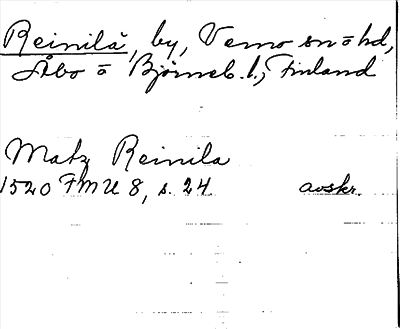 Reinilä, by, Vemo sn o hd,
Åbo o Björneb. l., Finland
Matz Reinila
1520 FMU 8, s. 24 avskr.